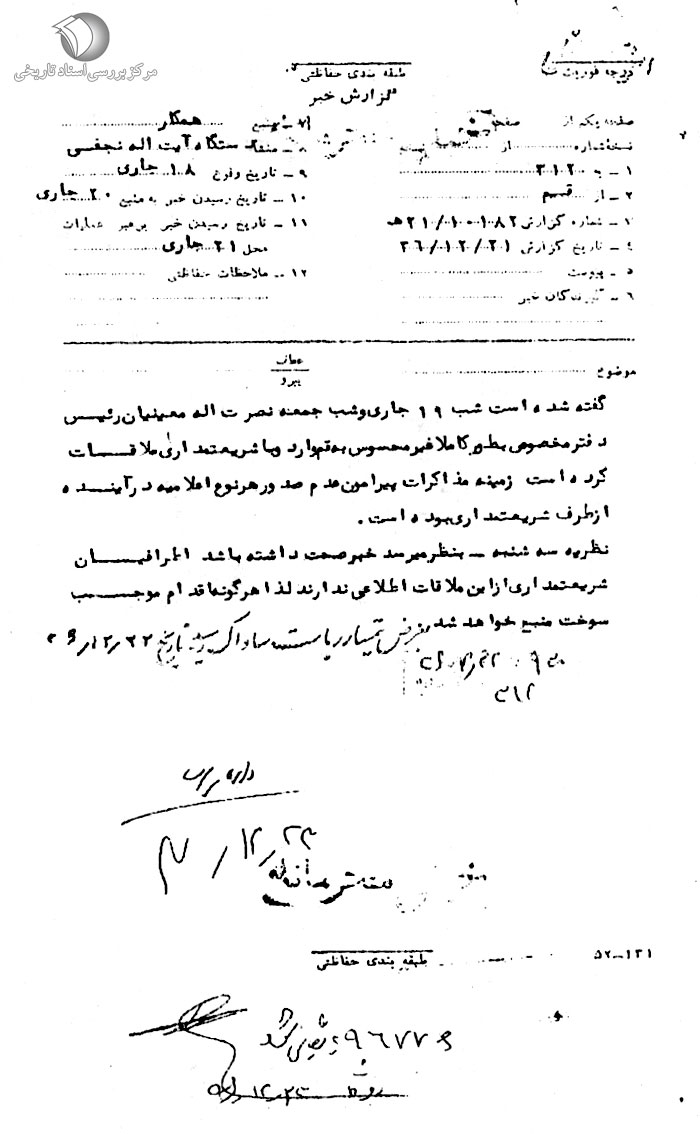 مرکز بررسی اسناد تاریخی
درجه فوریت
طبقه بندی حفاظتی
گزارش خبر
صفحه یکم از صفحه
نسخه شماره از
۱ ـ به ۳۱۲
۲ ـ از قسم
۳ ـ شماره گزارش ۲۱/۱۰۰۱۸۲ هـ
۴ ـ تاریخ گزارش ۳۶/۱۲/۲۱
۵ ـ پیوست
۶ ـ گیرندگان خبر
۷ ـ منبع همکار
۸ ـ منشاء دستگاه آیت اله نجفی
۹ ـ تاریخ وقوع ۱۸ جاری
۱۰ ـ تاریخ رسیدن خبر به منبع ۲۰ جاری
۱۱ ـ تاریخ رسیدن خبر برهبر عملیات
محل ۲۱ جاری
۱۲ ـ ملاحظات حفاظتی
موضوع
عطف
پیرو
گفته شده است شب ۱۹ جاری وشب جمعه نصرت اله معینیان رئیس
دفتر مخصوص بطور کاملا غیر محسوس به قم وارد وبا شریعتمداری ملاقات
کرده است زمینه مذاکرات پیرامون عدم صدور هر نوع اعلامیه در آینده
از طرف شریعتمداری بوده است .
نظریه سه شنبه ـ بنظر میرسد خبر صحت داشته باشد اطرافیان
شریعتمداری از این ملاقات اطلاعی ندارند لذا هرگونه اقدام موجب
سوخت منبع خواهد شد
بعرض تیمسار ریاست ساواک رسید تاریخ ۳۶/۱۲/۲۲
۳۱۲
۱۲/۲۳
۱۳۱ـ۵۲
طبقه بندی حفاظتی
۹۶۷۷۶